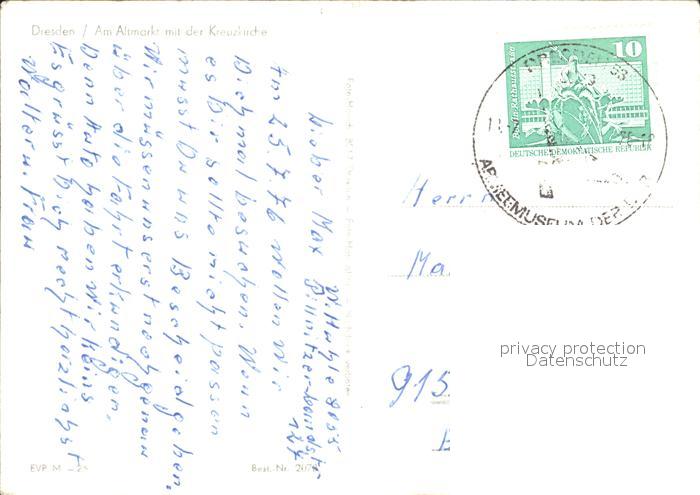 Dresden / Am Altmarkt mit der Kreuzkirche
Lieber Max
Am 25.7.76 wollen wir
Dich mal besuchen. Wenn
es Dir sollte nicht passen
musst Du uns Bescheid geben.
Wir müssen uns erst noch genau
über die Fahrt erkundigen,
Denn Auto haben wir keins
Es grüsst Dich recht herzlichst
Walter u. Frau
127
EVP M
Best.-Nr.
10
DEUTSCHE DEMOKRATISCHE REPUBLIK
ARMEEMUSEUM DER
Herrn
Ma
915
privacy protection
Datenschutz